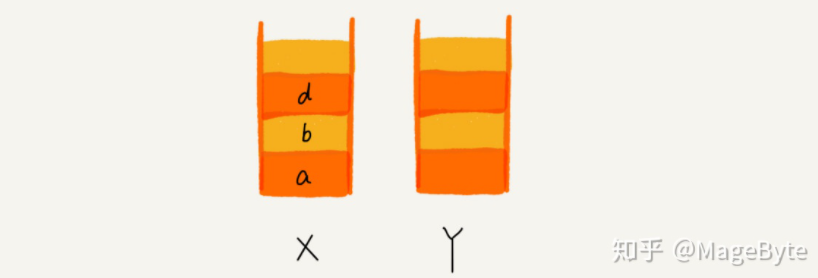 d
b
a
X Y
知乎 @MageByte